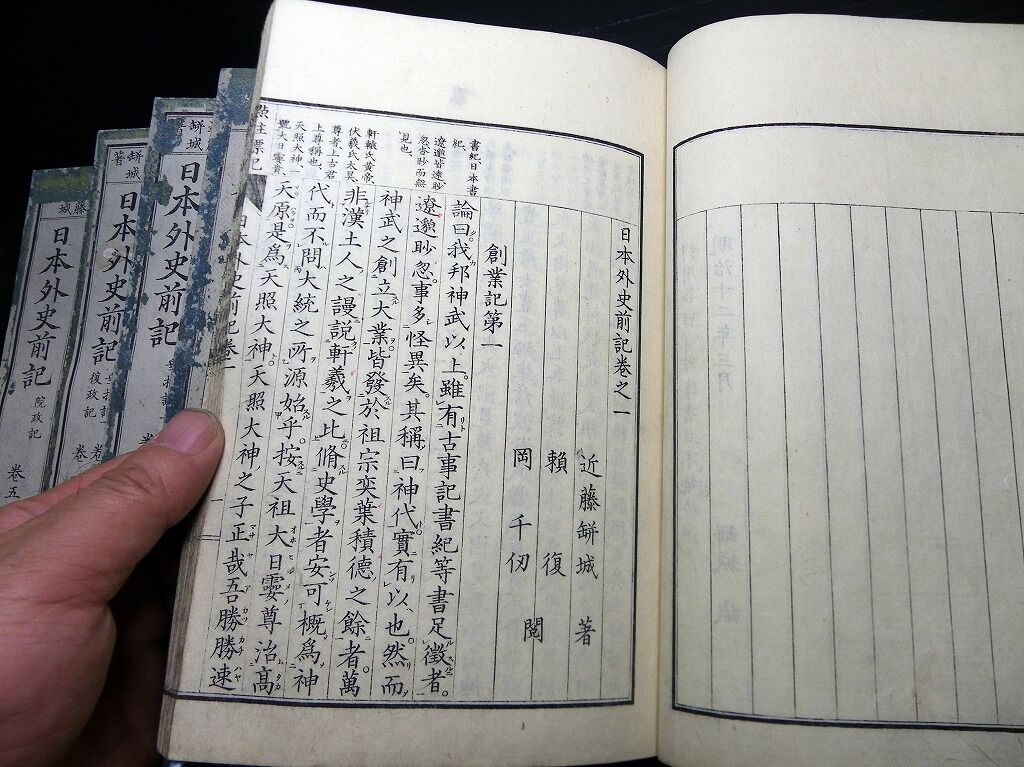 日本外史前記卷之一
近藤缾城 著
賴 復
岡 千仞 閱
創業記第一
論曰我邦神武以上。雖有古事記書紀等書足徵者。
遼邈眇忽。事多怪異矣。其稱曰神代實有以也。然而
神武之創立大業。皆發於祖宗奕葉積德之餘者。萬
非漢土人之謾說軒羲之比。脩史學者安可概爲神
代而不問大統之所源始乎。按大祖大日孁尊治高
天原。是爲天照大神。天照大神之子正哉吾勝勝速
書紀、日本書
紀、
遼邈皆遠眇
忽杳眇而無
見也、
軒轅氏黃帝、
伏羲氏太昊、
尊者上古君
上尊稱也、
天照大神一
號大日孁貴、
日本外史前記卷一
一
缾城
著
日本外史前記
缾城
著
日本外史前記
復政記
藤城
日本外史前記
院政記
卷五
明治十二年三月